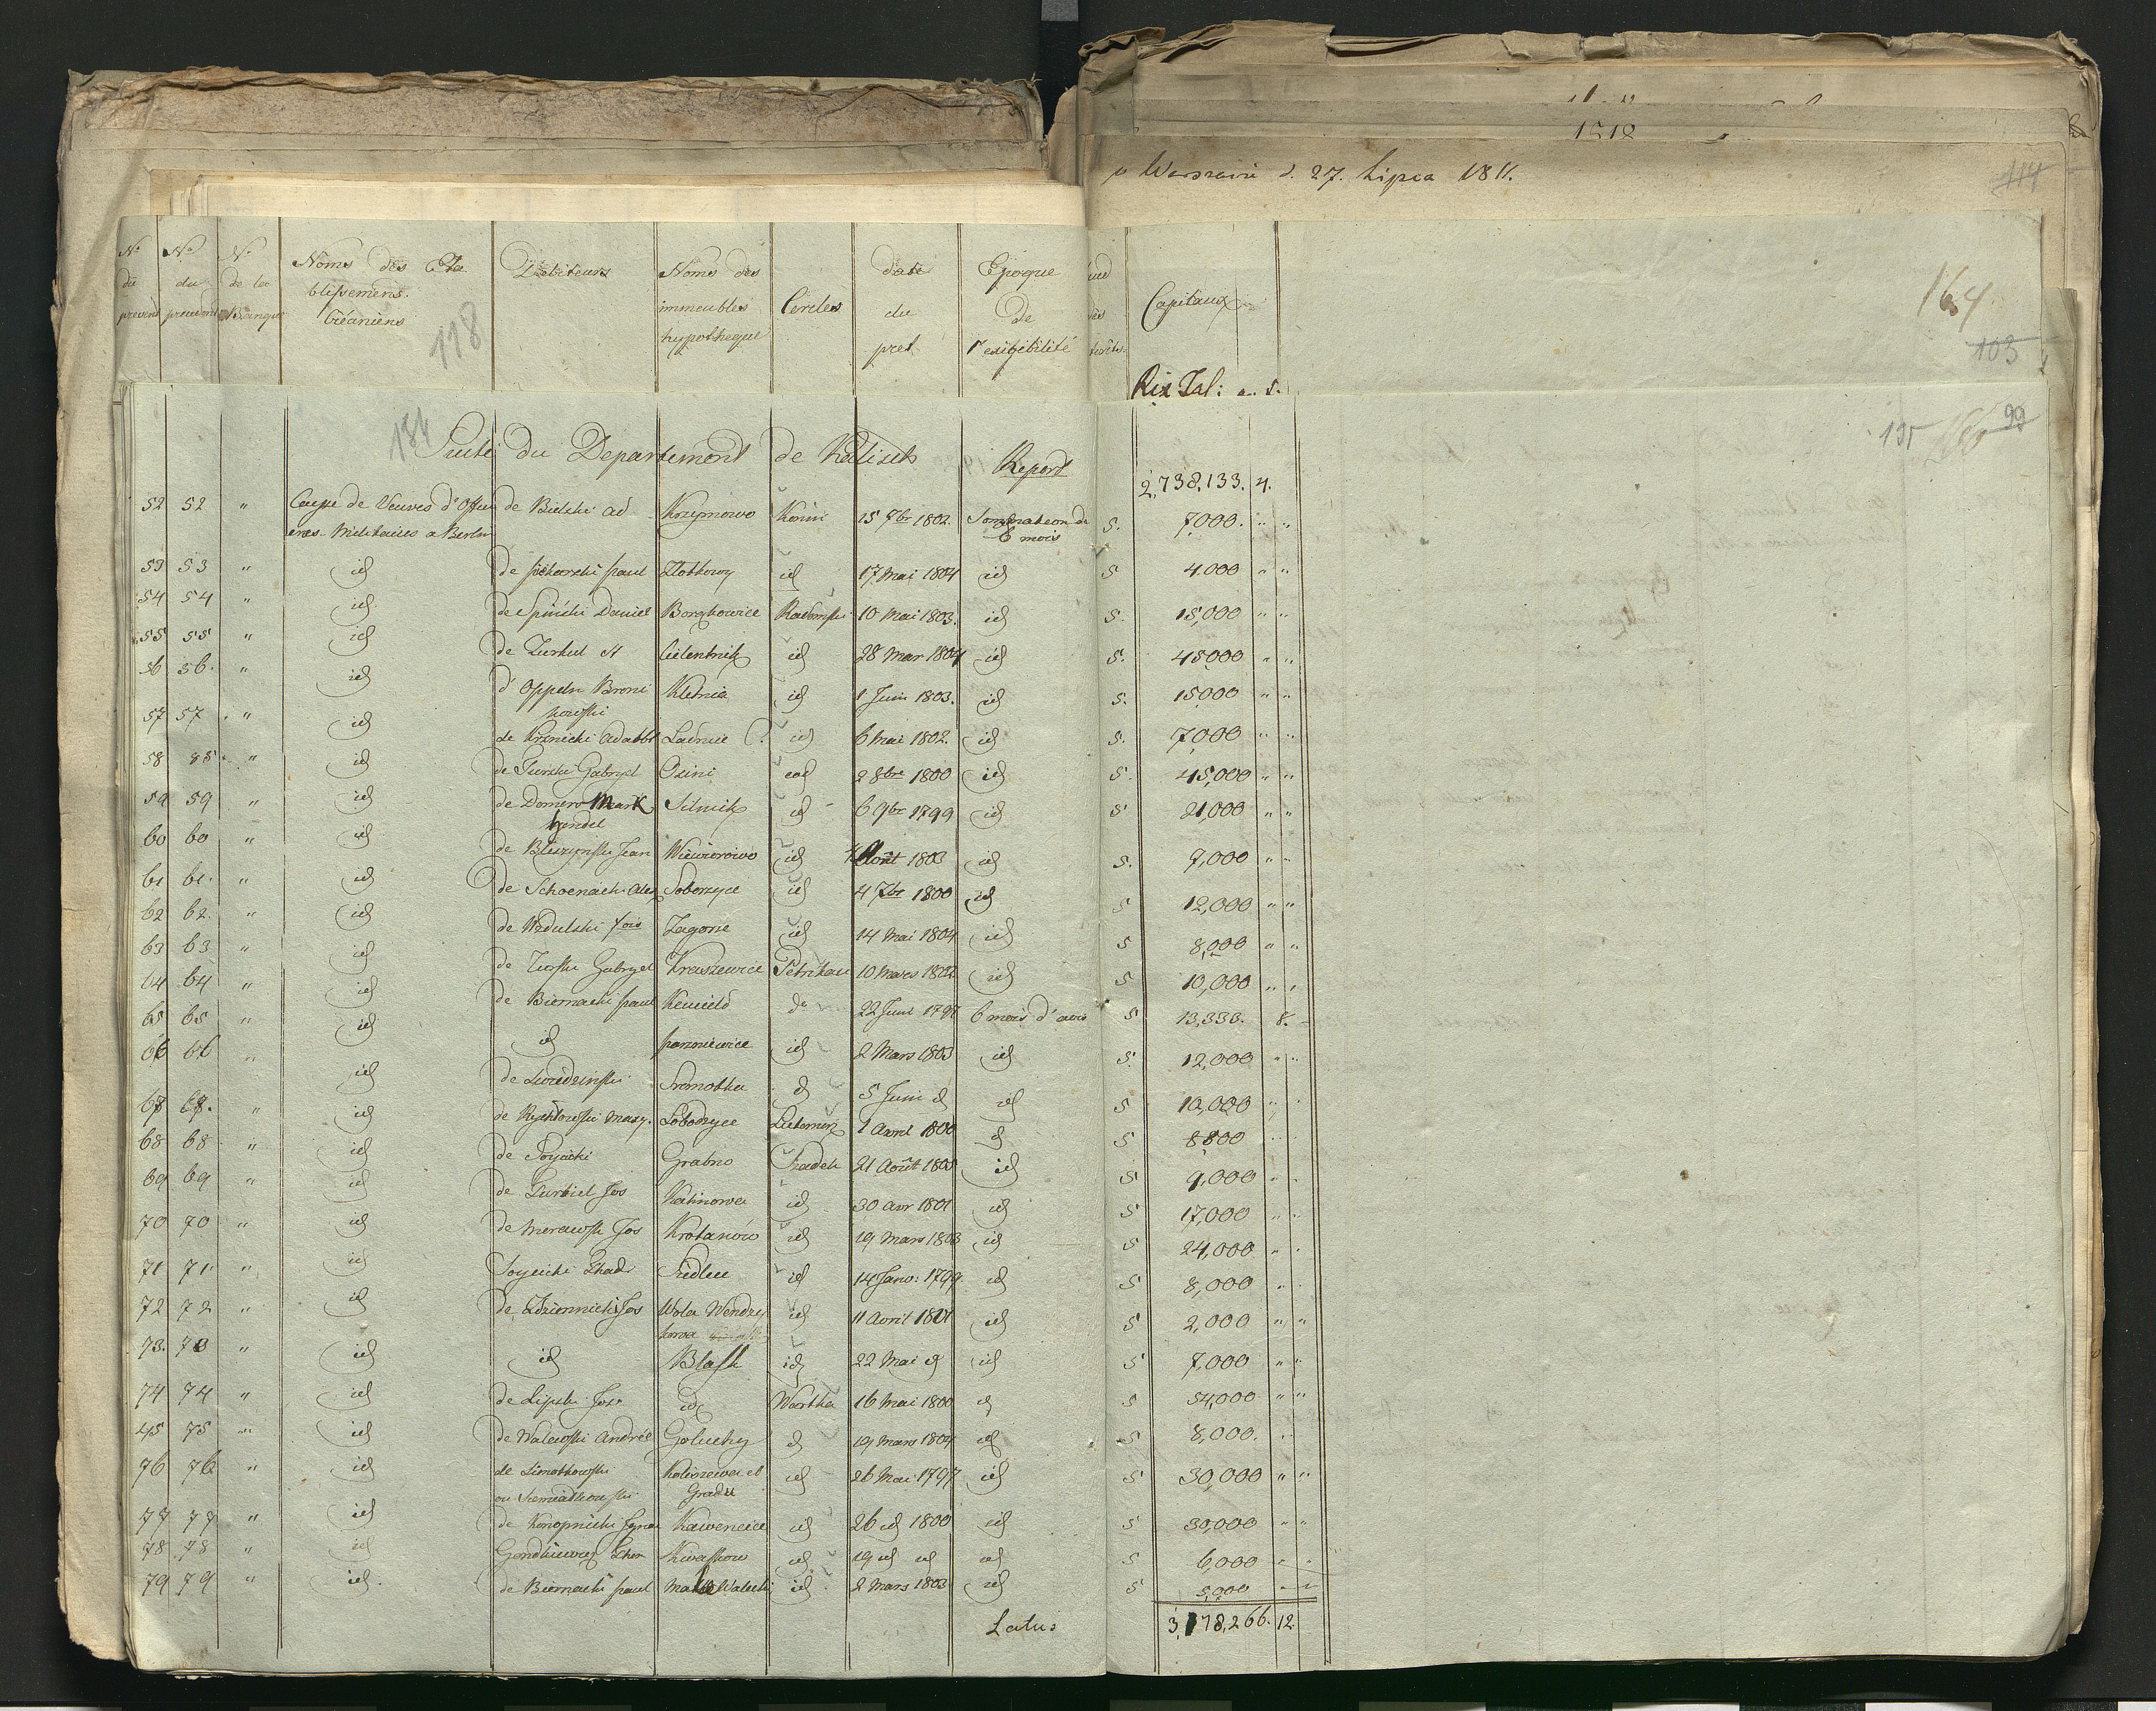 1812
w Warszawie d. 27. Lipca 1811.
114
No du prevend No du prevend No de la Banque Noms des Etablissemens Créanciers Debiteurs Noms des immeubles hypotheque Cercles date du pret Epoque de l'exigibilité Capitaux
118
164
103
Rix Tal: a. 5.
184
135 99
Suite du Departement de Kalisch Report 2,738,133. 4.
52 52 " Caisse de Veuves d'Officieres Militaires a Berlin de Bielski ad Krzymowo Konin 15 7br 1802. Somation de 6 mois 5. 7000. " "
53 53 " id de piekarski paul Zlotkowy id 17 Mai 1804 id 5 4.000 " "
54 54 " id de Spinski Daniel Borzykowice Radomski 10 Mai 1803. id 5. 15,000 " "
55 55 " id de Turkul St Cielentnik id 28 Mar 1804 id 5. 45000 " "
56 56. " id d'Oppeln Broni
kowski Kletnia id 1 Juin 1803. id 5. 15000 " "
57 57 " id de Krznicki Adalbt Ladnie id 6 Mai 1802. id 5. 7000 " "
58 58 " id de Turski Gabryel Osini id 2 8bre 1800 id 5. 45,000 " "
59 59 " id de Domers Mark
hendel Silnik id 6 9br 1799 id 5 21,000 " "
60 60 " id de Bluszynski Jean Wiewiorowo id Août 1803 id 5. 9,000 " "
61 61. " id de Schoenaich Alex Soborzyce id 4 7br 1800 id 5 12,000 " "
62 62. " id de Wedulski fois Zagorze id 14 Mai 1804 id 5 8,000 " "
63 63 " id de Turski Gabryel Kraszewice Petrikau 10 Mars 1802 id 5 10,000 " "
64 64 " id de Biernacki paul Kamielo do 22 Juni 1797 6 mois d'avis 5 13,333. 8.
65 65 " id id parzniewice id 2 Mars 1803 id 5. 12,000 " "
66 66 " id de Swiedzinski Sromotka d 5 Juin d id 5 10,000 " "
67 67. " id de Rychlowski Maxy. Lobodzyce Lutomierz 1 Avril 1800 d 5 8800
68 68 " id de Poycicki Grabno Szadek 21 Août 1803 id 5 9,000 " "
69 69 " id de Turkiel Jos Kalinowa id 30 avr 1801 id 5 17,000 " "
70 70 " id de Merawski Jos Krobanów id 19 Mars 1803 id 5 24,000 " "
71 71 " id Poycicki Thad Siedlce id 14 Janv: 1799 id 5 8,000 "
72 72 " id de Zdziennicki Jos Wola Wendzy
kowa id 11 Avril 1801 id 5 2,000 " "
73. 73 " id id Blask id 22 Mai d id 5 7,000 " "
74 74 " id de Lipski Jos id Wartha 16 Mai 1800 d 5 54,000 " "
75 75 " id de Walewski André Goluchy d 19 Mars 1804 id 5 8,000.
76 76 " id de Simotkowski
ou Siemiatkowski Kaliszewa et
Gradu id 26 Mai 1797 id 5 30,000 " "
77 77 " id de Konopnicki Ignac Kawencice id 26 id 1800 id 5 30,000 " "
78 78 " id Gendkiewicz Thom Kwaskow id 19 id id id 5 6,000 "
79 79 " id. de Biernacki paul Mala Walecki id 2 Mars 1803 id 5 5,000
Latus 3,178,266. 12.